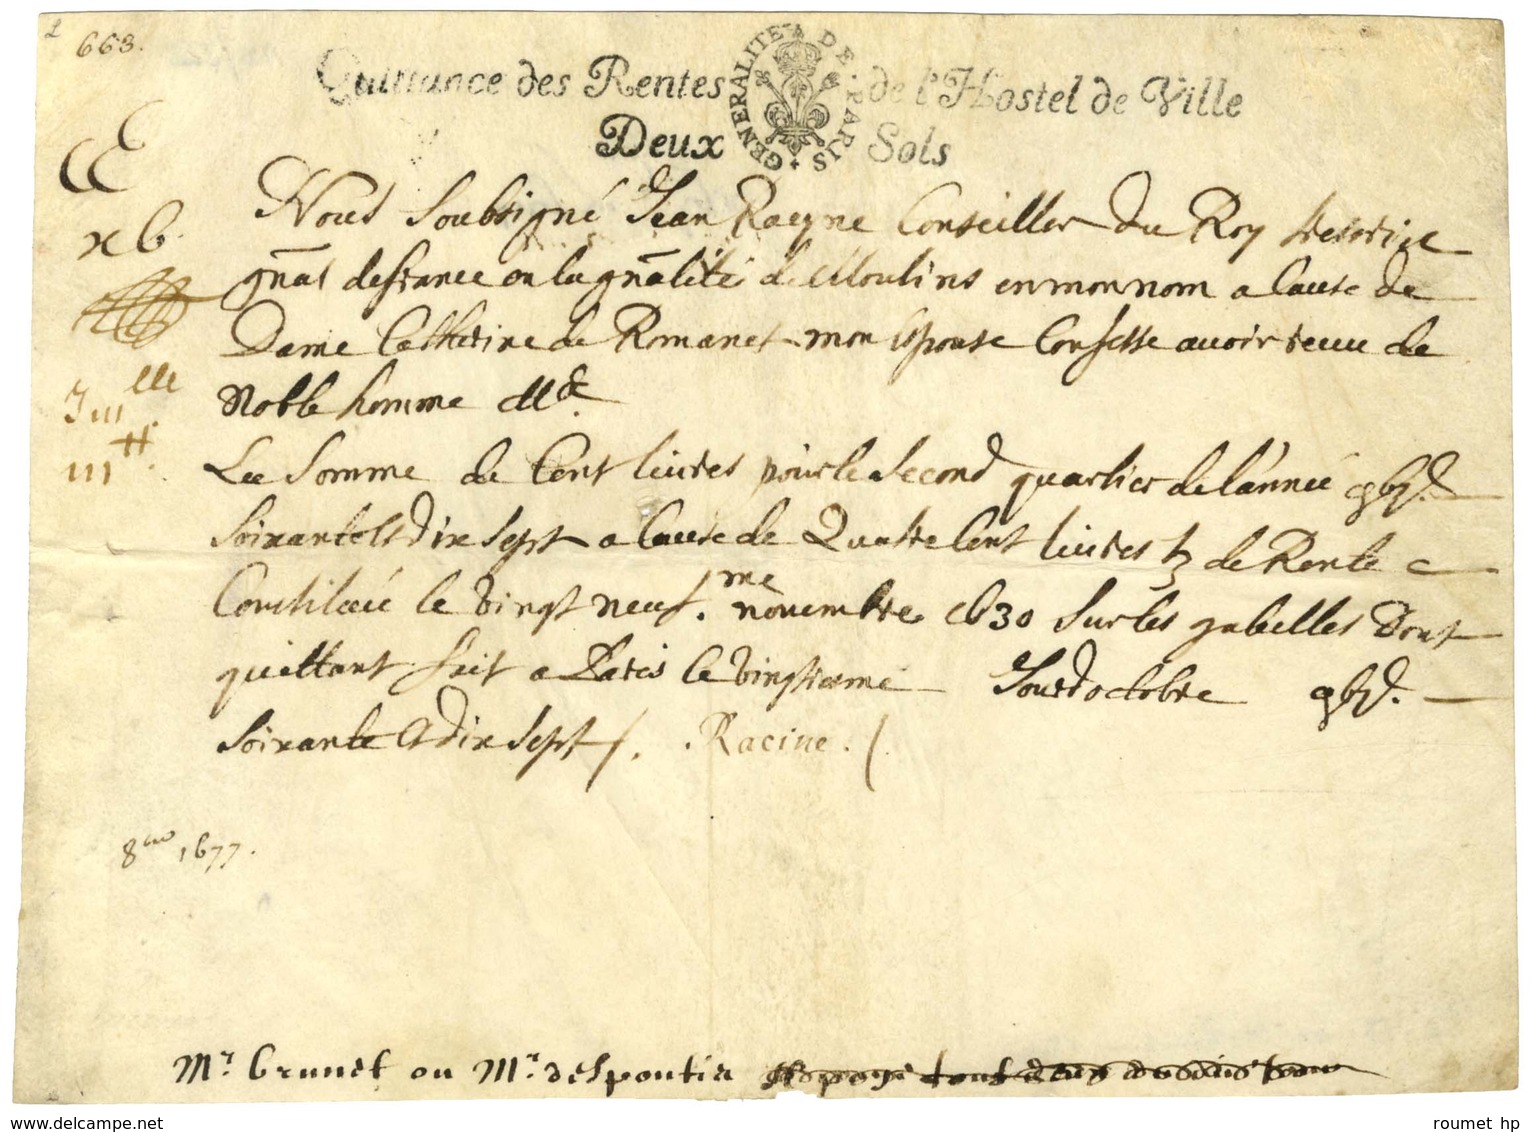 2
663.
Quittance des Rentes de l'Hostel de Ville
GENERALITE DE PARIS
Deux Sols
Nous Soubsigné Jean Racyne Conseiller du Roy tresorier
gñal de france en la gñalité de Moulins en mon nom a cause de
Dame Catherine de Romanet mon espouse Confesse avoir receu de
Noble homme Mr
La Somme de Cent livres pour le second quartier de l'année
Soixante et dix sept a cause de Quatre Cent livres tz de Rente
Constituée le vingt neuf.me novembre 1630 sur les gabelles Dont
quittant fait a Paris le vingtiesme Jour d'octobre
Soixante et dix sept /. Racine. /
xb
iii tt.
8bre 1677.
Mr. brunet ou Mr. despontis
roumet hp